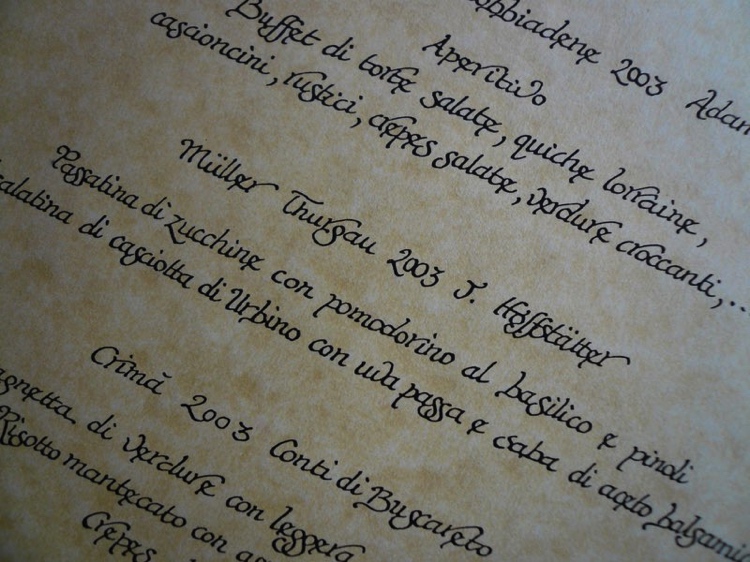 2003 Adam
Aperitivo
Buffet di torte salate, quiche lorraine,
cascioncini, rustici, crepes salate, verdure croccanti,..
Müller Thurgau 2003 J. Hoffstätter
Passatina di zucchine con pomodorino al basilico e pinoli
salatina di casciotta di Urbino con uva passa e saba di aceto balsamic
Crimà 2003 Conti di Buscareto
di verdure con leggera
Risotto mantecato con
Crepes